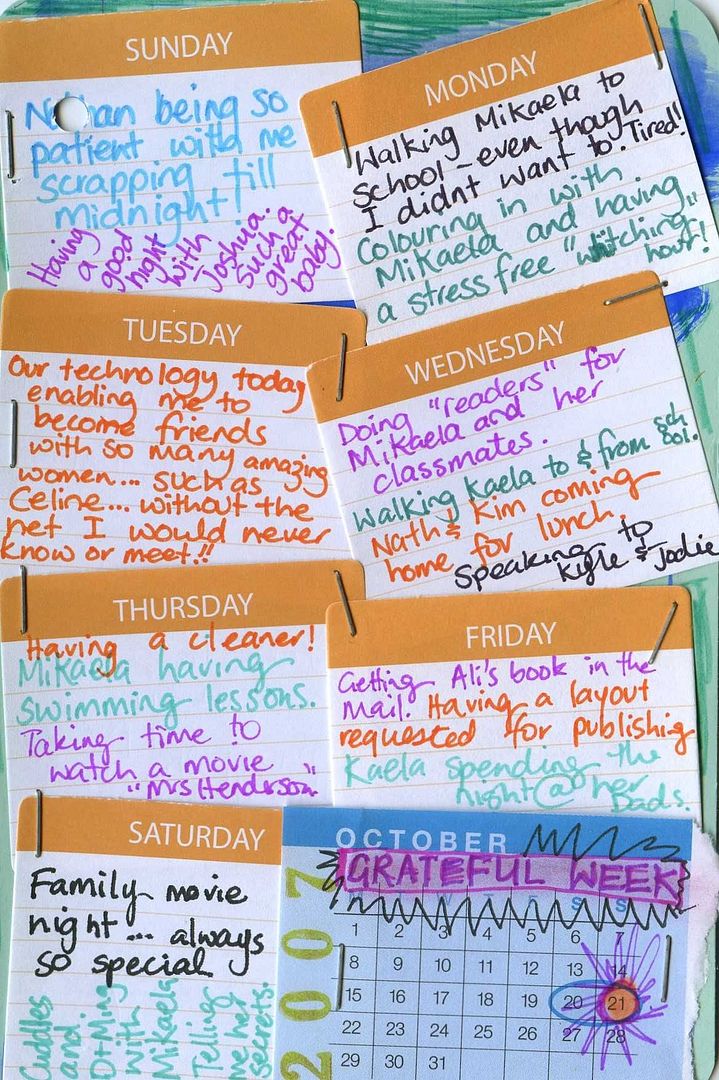 SUNDAY
Nathan being so
patient with me
scrapping till
midnight!
Having a good night with Joshua. Such a great baby.
MONDAY
Walking Mikaela to
School - even though
I didnt want to. Tired!
Colouring in with
Mikaela and having
a stress free "witching hour"!
TUESDAY
Our technology today
enabling me to
become friends
with so many amazing
women... such as
Celine... without the
net I would never
know or meet!!
WEDNESDAY
Doing "readers" for
Mikaela and her
classmates.
Walking Kaela to & from school.
Nath & Kim coming
home for lunch.
Speaking to
Kyle & Jodie
THURSDAY
Having a cleaner!
Mikaela having
swimming lessons.
Taking time to
watch a movie
"Mrs Henderson"
FRIDAY
Getting Ali's book in the
Mail. Having a layout
requested for publishing
Kaela spending the
night @ her
Dads.
SATURDAY
Family movie
night ... always
so special
Cuddles
and
D+Ming
with
Mikaela
Telling
me her
secrets.
OCTOBER
GRATEFUL WEEK
2007
1 2 3 4 5 6 7
8 9 10 11 12 13 14
15 16 17 18 19 20 21
22 23 24 25 26 27 28
29 30 31